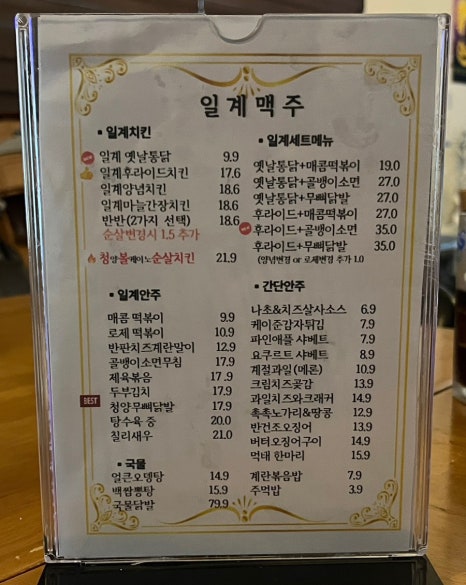 일계맥주
▪ 일계치킨
NEW 일계 옛날통닭 9.9
일계후라이드치킨 17.6
일계양념치킨 18.6
일계마늘간장치킨 18.6
반반(2가지 선택) 18.6
순살변경시 1.5 추가
청양볼케이노순살치킨 21.9
▪ 일계세트메뉴
옛날통닭+매콤떡볶이 19.0
옛날통닭+골뱅이소면 27.0
옛날통닭+무뼈닭발 27.0
후라이드+매콤떡볶이 27.0
NEW 후라이드+골뱅이소면 35.0
후라이드+무뼈닭발 35.0
(양념변경 or 로제변경 추가 1.0
▪ 일계안주
매콤 떡볶이 9.9
로제 떡볶이 10.9
반판치즈계란말이 12.9
골뱅이소면무침 17.9
제육볶음 17.9
두부김치 17.9
BEST 청양무뼈닭발 17.9
탕수육 중 20.0
칠리새우 21.0
▪ 국물
얼큰오뎅탕 14.9
백짬뽕탕 15.9
국물닭발 79.9
▪ 간단안주
나초&치즈살사소스 6.9
케이준감자튀김 7.9
파인애플 샤베트 7.9
요쿠르트 샤베트 8.9
계절과일(메론) 10.9
크림치즈곶감 13.9
과일치즈와크래커 14.9
촉촉노가리&땅콩 12.9
반건조오징어 13.9
버터오징어구이 14.9
먹태 한마리 15.9
계란볶음밥 7.9
주먹밥 3.9